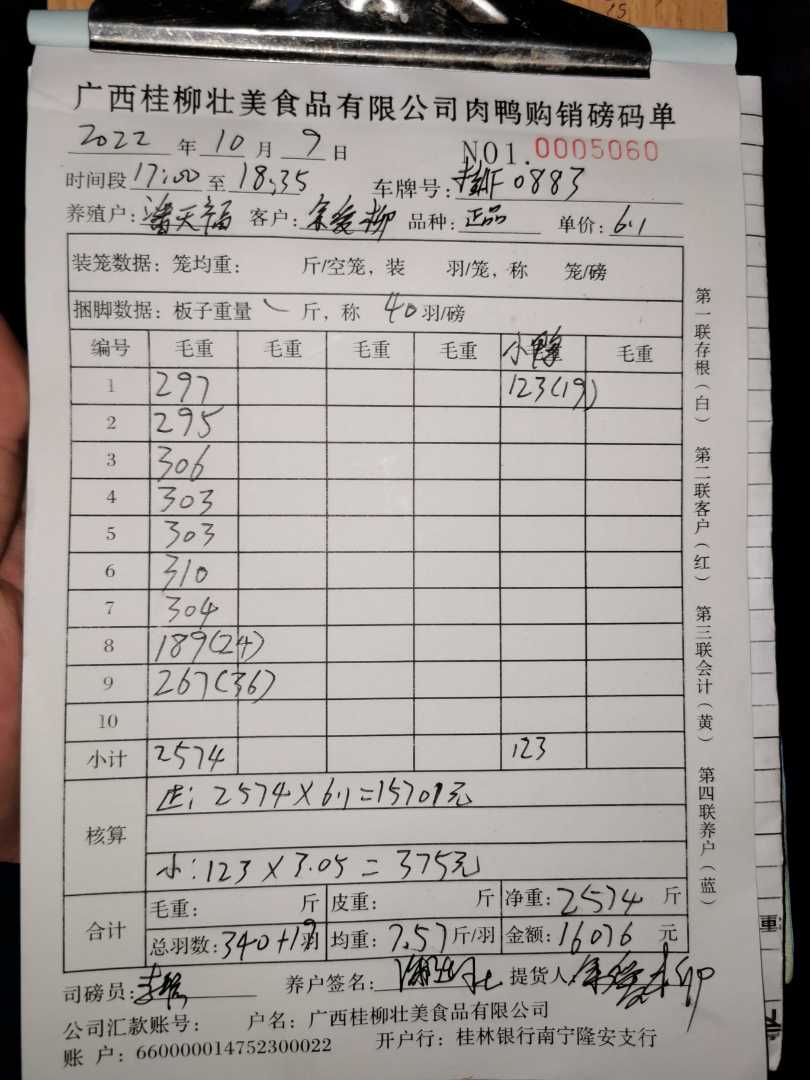 广西桂柳壮美食品有限公司肉鸭购销磅码单
2022 年 10 月 9 日 NO1. 0005060
时间段 17:00 至 18:35 车牌号: 0883
养殖户: 潘天福 客户: 品种: 正品 单价: 6.1
装笼数据: 笼均重: 斤/空笼, 装 羽/笼, 称 笼/磅
捆脚数据: 板子重量 斤, 称 40 羽/磅
编号 毛重 毛重 毛重 毛重 小鸭 毛重
1 297 123(19)
2 295
3 306
4 303
5 303
6 310
7 304
8 189(24)
9 267(36)
10
小计 2574 123
核算
正: 2574×6.1=15701元
小: 123×3.05=375元
合计
毛重: 斤 皮重: 斤 净重: 2574 斤
总羽数: 340+19 羽 均重: 7.57 斤/羽 金额: 16076 元
司磅员: 养户签名: 提货人:
公司汇款账号: 户名: 广西桂柳壮美食品有限公司
账 户: 660000014752300022 开户行: 桂林银行南宁隆安支行
第一联存根(白) 第二联客户(红) 第三联会计(黄) 第四联养户(蓝)